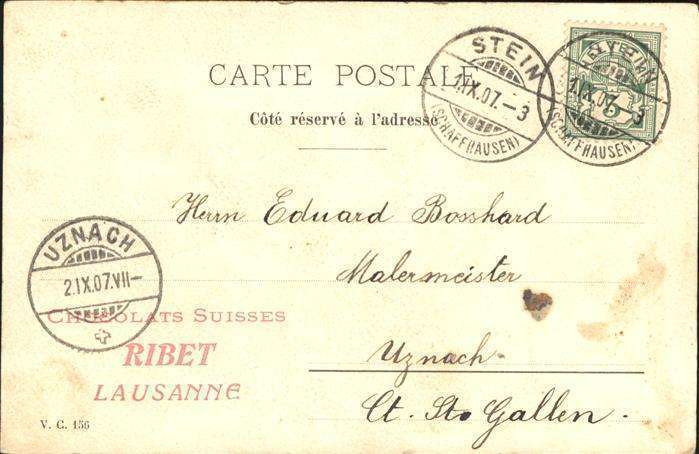 CARTE POSTALE
Côté réservé à l'adresse
STEIN
1.IX.07.-3
(SCHAFFHAUSEN)
1.IX.07.-3
(SCHAFFHAUSEN)
Herrn Eduard Bosshard
Malermeister
Uznach
Ct. St. Gallen.
UZNACH
2.IX.07.VII-
CHOCOLATS SUISSES
RIBET
LAUSANNE
V. C. 156